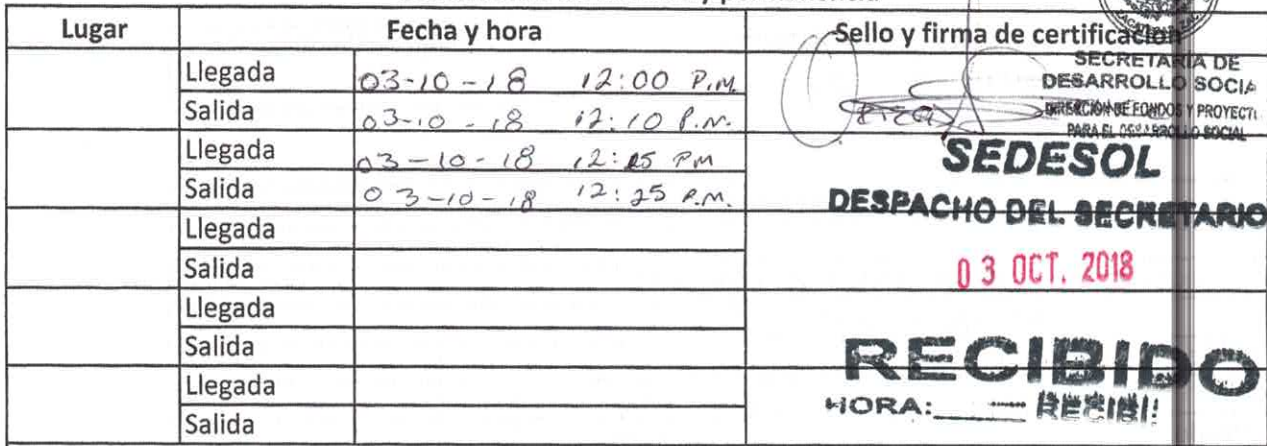 Lugar Fecha y hora Sello y firma de certificación
Llegada 03-10-18 12:00 P.M.
Salida 03-10-18 12:10 P.M.
Llegada 03-10-18 12:15 PM
Salida 03-10-18 12:25 P.M.
Llegada
Salida
Llegada
Salida
Llegada
Salida
SECRETARÍA DE
DESARROLLO SOCIA
DIRECCIÓN DE FONDOS Y PROYECT
PARA EL DESARROLLO SOCIAL
SEDESOL
DESPACHO DEL SECRETARIO
03 OCT. 2018
RECIBIDO
HORA: